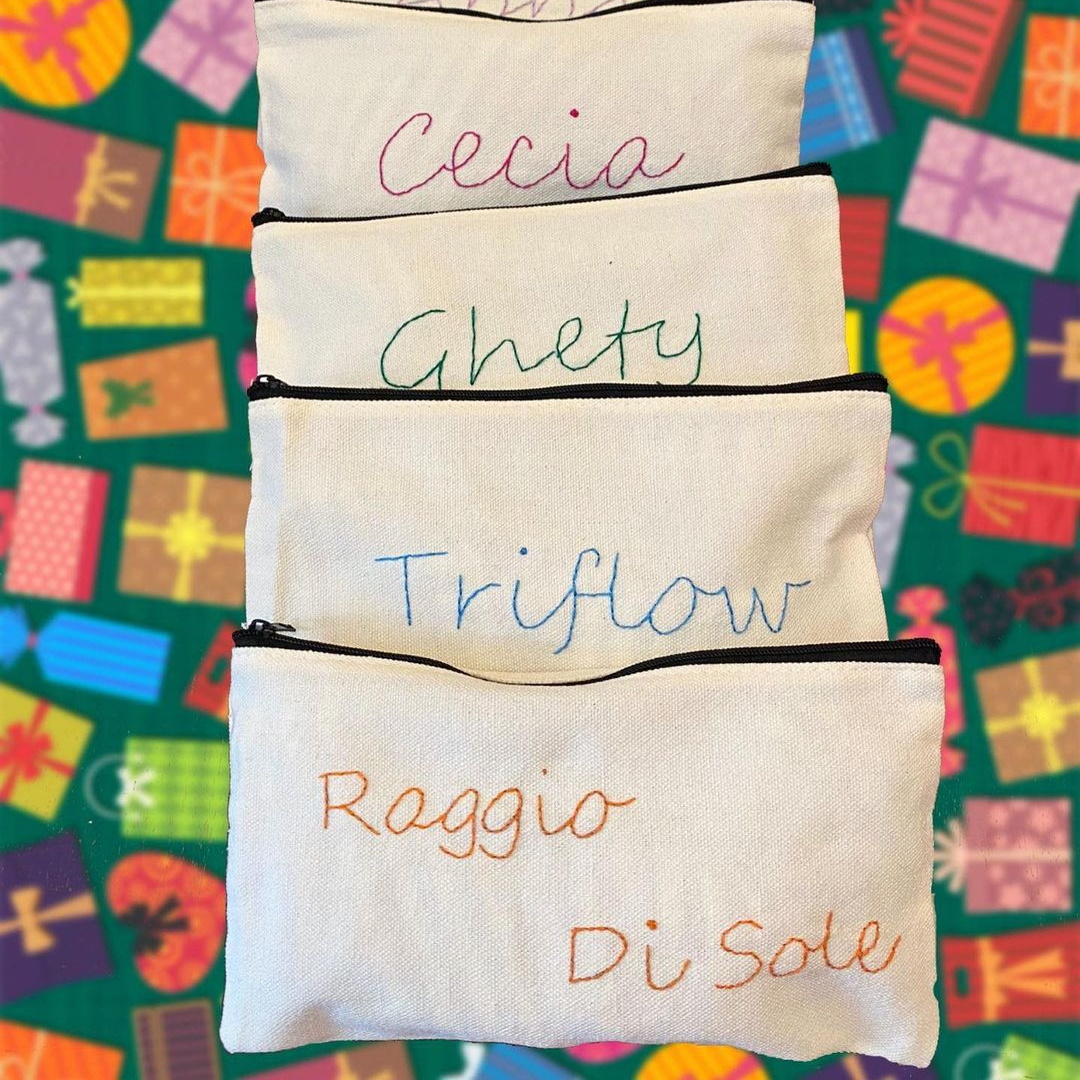 Cecia
Ghety
Triflow
Raggio
Di Sole